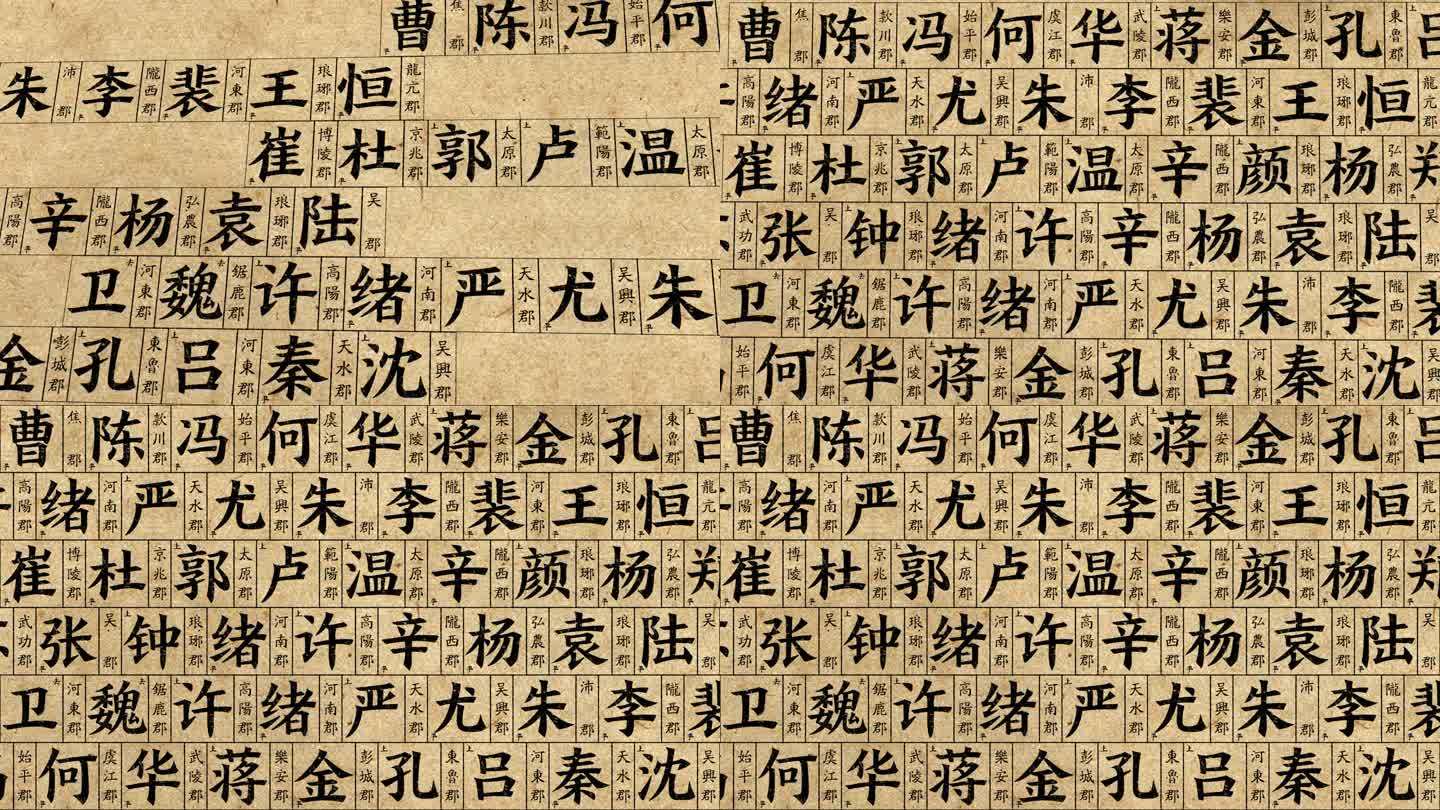 曹 焦郡 陈 款川郡 冯 始平郡 何
朱 沛郡 李 隴西郡 裴 河東郡 王 琅琊郡 恒 龍亢郡
崔 博陵郡 杜 京兆郡 郭 太原郡 卢 範陽郡 温 太原郡
高陽郡 辛 隴西郡 杨 弘農郡 袁 琅琊郡 陆 吴郡
卫 河東郡 魏 鋸鹿郡 许 高陽郡 绪 河南郡 严 天水郡 尤 吴興郡 朱
金 彭城郡 孔 東魯郡 吕 河東郡 秦 天水郡 沈 吴興郡
曹 焦郡 陈 款川郡 冯 始平郡 何 虞江郡 华 武陵郡 蒋 樂安郡 金 彭城郡 孔 東魯郡 吕
高陽郡 绪 河南郡 严 天水郡 尤 吴興郡 朱 沛郡 李 隴西郡 裴 河東郡 王 琅琊郡 恒 龍亢郡
崔 博陵郡 杜 京兆郡 郭 太原郡 卢 範陽郡 温 太原郡 辛 隴西郡 颜 琅琊郡 杨 弘農郡 郑
武功郡 张 吴郡 钟 琅琊郡 绪 河南郡 许 高陽郡 辛 隴西郡 杨 弘農郡 袁 琅琊郡 陆 吴郡
卫 河東郡 魏 鋸鹿郡 许 高陽郡 绪 河南郡 严 天水郡 尤 吴興郡 朱 沛郡 李 隴西郡 裴
始平郡 何 虞江郡 华 武陵郡 蒋 樂安郡 金 彭城郡 孔 東魯郡 吕 河東郡 秦 天水郡 沈 吴興郡
曹 焦郡 陈 款川郡 冯 始平郡 何 虞江郡 华 武陵郡 蒋 樂安郡 金 彭城郡 孔 東魯郡 吕
高陽郡 绪 河南郡 严 天水郡 尤 吴興郡 朱 沛郡 李 隴西郡 裴 河東郡 王 琅琊郡 恒 龍亢郡
崔 博陵郡 杜 京兆郡 郭 太原郡 卢 範陽郡 温 太原郡 辛 隴西郡 颜 琅琊郡 杨 弘農郡 郑
武功郡 张 吴郡 钟 琅琊郡 绪 河南郡 许 高陽郡 辛 隴西郡 杨 弘農郡 袁 琅琊郡 陆 吴郡
卫 河東郡 魏 鋸鹿郡 许 高陽郡 绪 河南郡 严 天水郡 尤 吴興郡 朱 沛郡 李 隴西郡 裴
始平郡 何 虞江郡 华 武陵郡 蒋 樂安郡 金 彭城郡 孔 東魯郡 吕 河東郡 秦 天水郡 沈 吴興郡
曹 焦郡 陈 款川郡 冯 始平郡 何 虞江郡 华 武陵郡 蒋 樂安郡 金 彭城郡 孔 東魯郡 吕
高陽郡 绪 河南郡 严 天水郡 尤 吴興郡 朱 沛郡 李 隴西郡 裴 河東郡 王 琅琊郡 恒 龍亢郡
崔 博陵郡 杜 京兆郡 郭 太原郡 卢 範陽郡 温 太原郡 辛 隴西郡 颜 琅琊郡 杨 弘農郡 郑
武功郡 张 吴郡 钟 琅琊郡 绪 河南郡 许 高陽郡 辛 隴西郡 杨 弘農郡 袁 琅琊郡 陆 吴郡
卫 河東郡 魏 鋸鹿郡 许 高陽郡 绪 河南郡 严 天水郡 尤 吴興郡 朱 沛郡 李 隴西郡 裴
始平郡 何 虞江郡 华 武陵郡 蒋 樂安郡 金 彭城郡 孔 東魯郡 吕 河東郡 秦 天水郡 沈 吴興郡